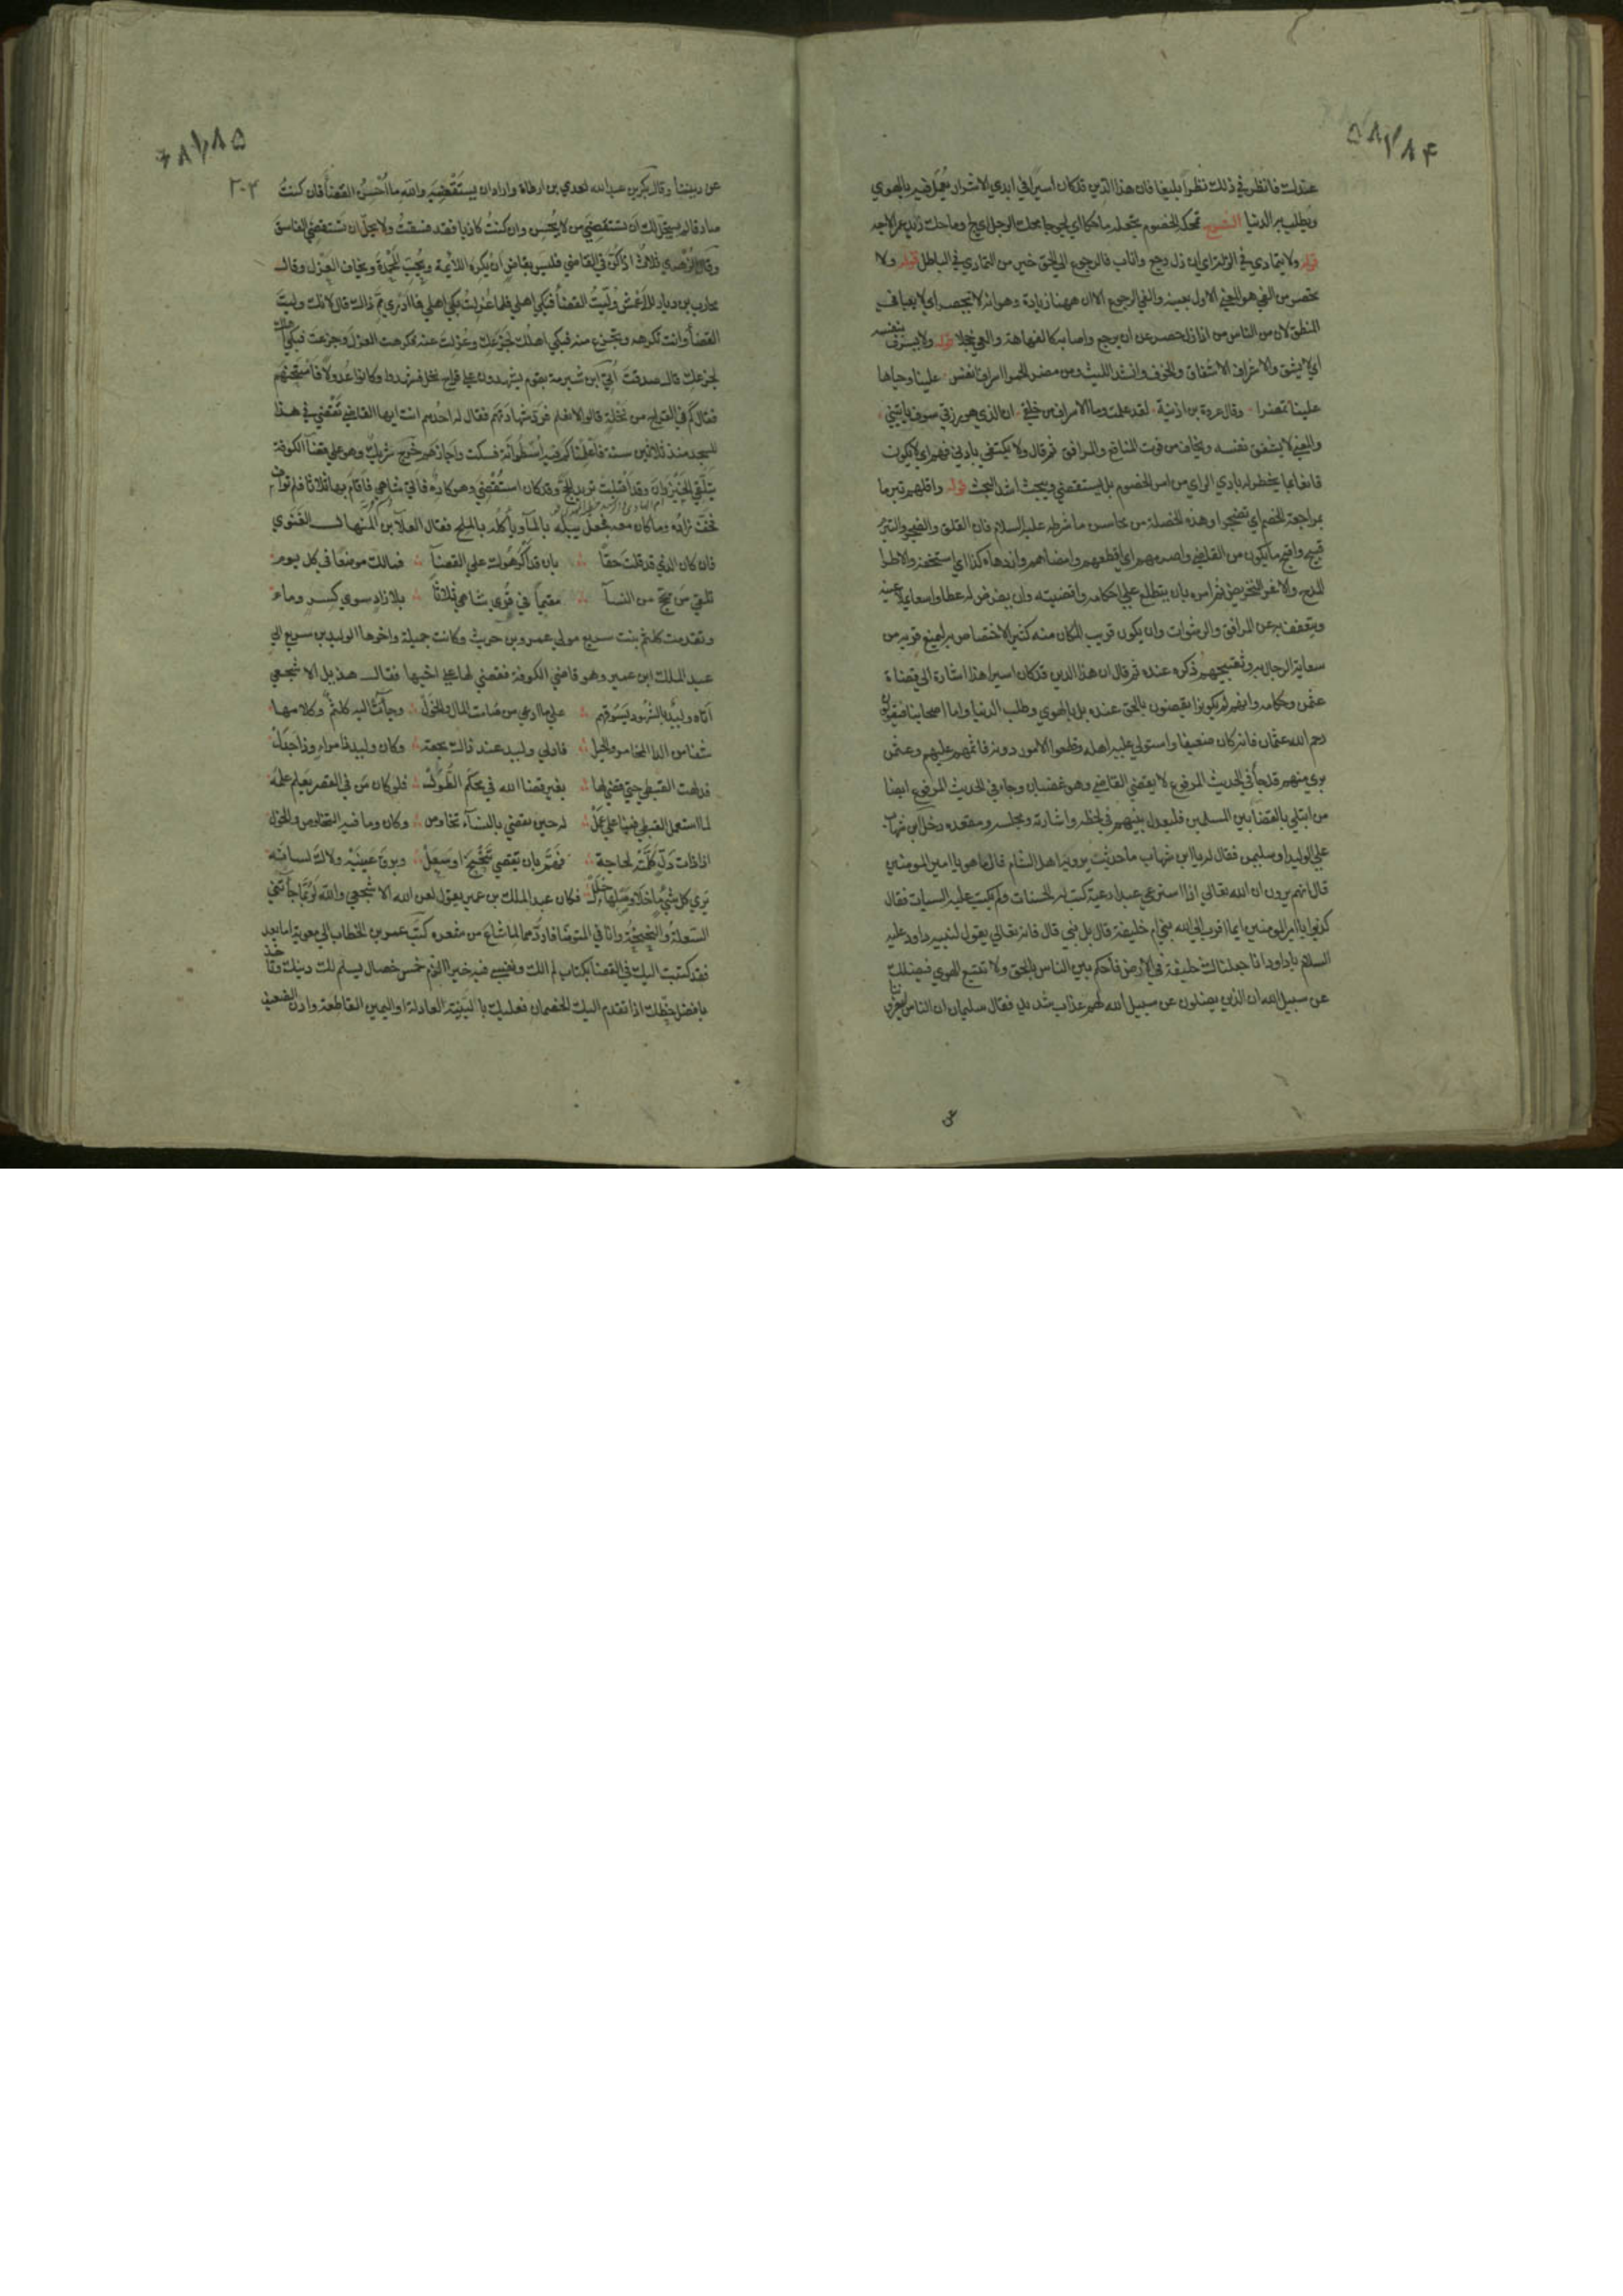 ۵۸۱/۸۴
عندك فانظر في ذلك نظرا بليغا فان هذا الدين قد كان اسيرا في ايدي الاشرار يعمل فيه بالهوي
ويطلب به الدنيا الشرح تمحكه الخصوم يجعله ماحكا اي لجوجا محك الرجل اي لج وماحك زيد عمرا لاجه
قوله ولا يتمادي في الزلة اي ان زل رجع واناب فالرجوع الي الحق خير من التمادي في الباطل قوله ولا
يحصر من الفي هو المعني الاول بعينه والفي الرجوع الا ان ههنا زيادة وهو انه لا يحصر اي لا يعيا في
المنطق لان من الناس من اذا زل حصر عن ان يرجع واصابه كالفهاهة والعي خجلا قوله ولا يشرف نفسه
اي لا يشفق والاشراف الاشفاق والخوف وانشد الليث ومن مضر الحمرا اسراف انفس علينا وحياها
علينا تمضرا وقال عروة بن اذينة لقد علمت وما الاسراف من خلقي ان الذي هو رزقي سوف ياتيني
والمعني لا يشفق نفسه ويخاف من فوت المنافع والمرافق ثم قال ولا يكتفي بادني فهم اي لا يكون
قانعا بما يخطر له بادي الراي من امر الخصوم بل يستقصي ويبحث اشد البحث قوله واقلهم تبرما
بمراجعة الخصم اي تضجرا وهذه الخصلة من محاسن ما شرطه عليه السلام فان القلق والضجر والتبرم
قبيح واقبح ما يكون من القاضي واصرمهم اي اقطعهم وامضاهم وازدهاه كذا اي استخفه والاطرا
المدح والاغرا التحريض ثم امره بان يتطلع علي احكامه واقضيته وان يفرض له عطا واسعا يملا عينه
ويتعفف به عن المرافق والرشوات وان يكون قريب المكان منه كثير الاختصاص به ليمنع قربه من
سعاية الرجال به وتقبيحهم ذكره عنده ثم قال ان هذا الدين قد كان اسيرا هذا اشارة الي قضاة
عثمن وحكامه وانهم لم يكونوا يقضون بالحق عنده بل بالهوي وطلب الدنيا واما اصحابنا فيقولون
رحم الله عثمان فانه كان ضعيفا واستولي عليه اهله وقطعوا الامور دونه فاثمهم عليهم وعثمن
بري منهم قد جا في الحديث المرفوع لا يقضي القاضي وهو غضبان وجا في الحديث المرفوع ايضا
من ابتلي بالقضا بين المسلمين فليعدل بينهم في لحظه واشارته ومجلسه ومقعده دخل ابن شهاب
علي الوليد او سليمن فقال له يا ابن شهاب ما حديث يرويه اهل الشام قال ما هو يا امير المومنين
قال انهم يروون ان الله تعالي اذا استرعي عبدا رعية كتب له الحسنات ولم يكتب عليه السيات فقال
كذبوا يا امير المومنين ايما اقرب الي الله نبي ام خليفة قال بل نبي قال فانه تعالي يقول لنبيه داود عليه
السلام يا داود انا جعلناك خليفة في الارض فاحكم بين الناس بالحق ولا تتبع الهوي فيضلك
عن سبيل الله ان الذين يضلون عن سبيل الله لهم عذاب شديد فقال سليمان ان الناس ليغروننا
عن
۶۸۱/۸۵
۲۰۴
عن ديننا وقال بكر بن عبد الله لعدي بن ارطاة واراد ان يستقضيه والله ما احسن القضا فان كنت
صادقا لم يحل لك ان تستقضي من لا يحسن وان كنت كاذبا فقد فسقت ولا يحل ان تستقضي الفاسق
وقال الزهري ثلاث اذا كن في القاضي فليس بقاض ان يكره اللائمة ويحب المحمدة ويخاف العزل وقال
محارب بن دثار للاعمش وليت القضا فبكي اهلي فلما عزلت بكي اهلي فما ادري مم ذاك قال لانك وليت
القضا وانت تكرهه وتجزع منه فبكي اهلك لجزعك وعزلت عنه فكرهت العزل وجزعت فبكي اهلك
لجزعك قال صدقت اتي ابن شبرمة بقوم يشهدون علي قراح نخل فشهدوا وكانوا عدولا فامتحنهم
فقال كم في القراح من نخلة قالوا لا نعلم فرد شهادتهم فقال له احدهم انت ايها القاضي تقضي في هذا
المسجد منذ ثلاثين سنة فاعلمنا كم فيه اسطوانة فسكت واجازهم خرج شريك وهو علي قضا الكوفة
يتلقي الخيزران وقد اقبلت تريد الحج وقد كان استقضي وهو كاره فاتي شاهي فاقام بها ثلاثا فلم تواف
فخف زاده وما كان معه فجعل يبله بالما وياكله بالملح فقال العلا بن المنهال الغنوي
فان كان الذي قد قلت حقا بان قد اكرهوك علي القضا فمالك موضعا في كل يوم
تلقي من يحج من النسا مقيما في قري شاهي ثلاثا بلا زاد سوي كسر وما
وتقدمت كلثم بنت سريع مولي عمرو بن حريث وكانت جميلة واخوها الوليد بن سريع الي
عبد الملك ابن عمير وهو قاضي الكوفة فقضي لها علي اخيها فقال هذيل الاشجعي
اتاه وليد بالشهود يسوقهم علي ما ادعي من صامت المال والخول وجات اليه كلثم وكلامها
شفا من الدا المخامر والخبل فادلي وليد عند ذاك بحقه وكان وليد ذا مراء وذا جدل
فدلهت القبطي حتي قضي لها بغير قضا الله في محكم الطول فلو كان من في القصر يعلم علمه
لما استعمل القبطي فينا علي عمل له حين يقضي بالنسا تخاوص وكان وما فيه التخاوص والحول
اذا ذات دل كلمته لحاجة فهم بان يقضي تنحنح او سعل وبرق عينيه ولاك لسانه
يري كل شي ما خلا وصلها جلل فكان عبد الملك بن عمير يقول لعن الله الاشجعي والله لربما جاتني
السعلة والنحنحة وانا في المتوضا فاردهما لما شاع من شعره كتب عمر بن الخطاب الي معوية اما بعد
فقد كتبت اليك في القضا بكتاب لم الك ونفسي فيه خيرا الزم خمس خصال يسلم لك دينك وتاخذ
بافضل حظك اذا تقدم اليك الخصمان فعليك بالبينة العادلة او اليمين القاطعة وادن الضعيف